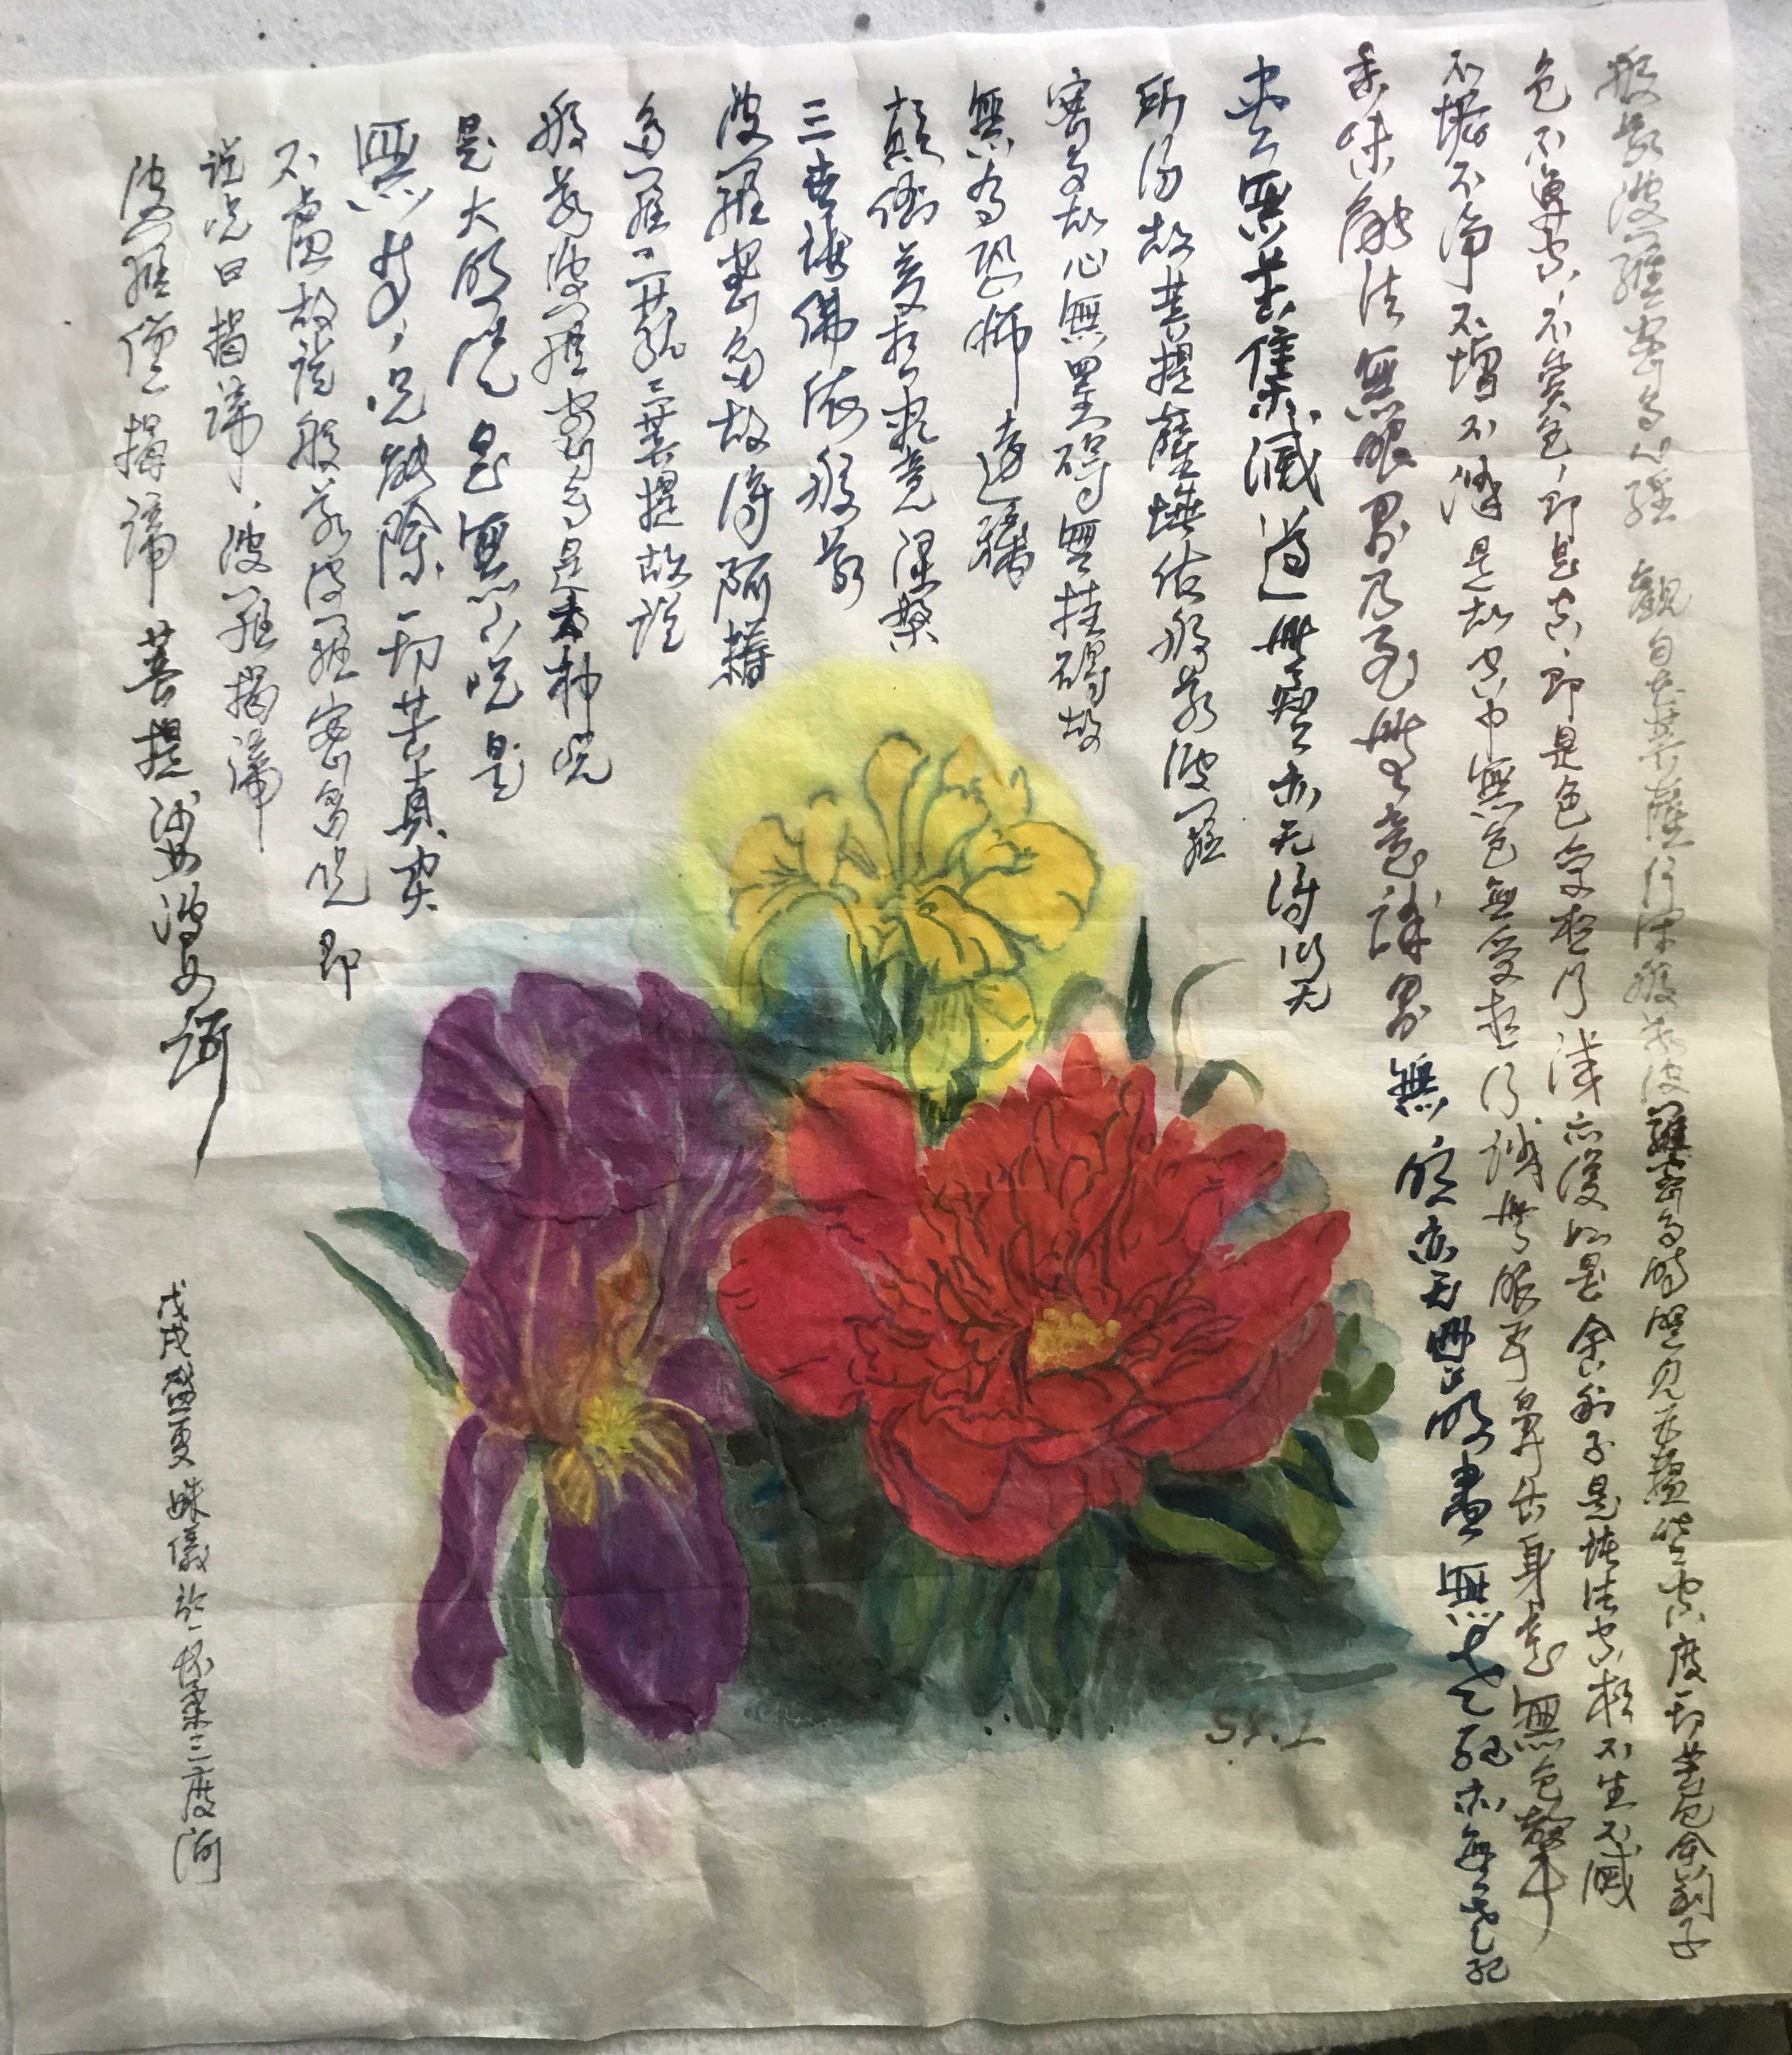 般若波羅蜜多心經 觀自在菩薩行深般若波羅蜜多時照見五蘊皆空度一切苦厄舍利子
色不異空、不異色,即是空、即是色受想行識亦復如是舍利子是諸法空相不生不滅
不垢不淨不增不減是故空中無色無受想行識無眼耳鼻舌身意無色聲
香味觸法無眼界乃至無意識界無明亦无無明盡無老死亦無老死
盡無苦集滅道無智亦无得以无
所得故菩提薩埵依般若波羅
密多故心無罣碍無挂碍故
無有恐怖遠離
顛倒夢想究竟涅槃
三世諸佛依般若
波羅蜜多故得阿耨
多羅三藐三菩提故説
般若波羅蜜多是大神咒
是大明咒是無上咒是
無等,咒能除一切苦真实
不虛故説般若波羅密多咒即
説咒曰揭諦、波羅揭諦
波羅僧揭諦菩提娑婆訶
戊戌 夏姝儀於
S4.L